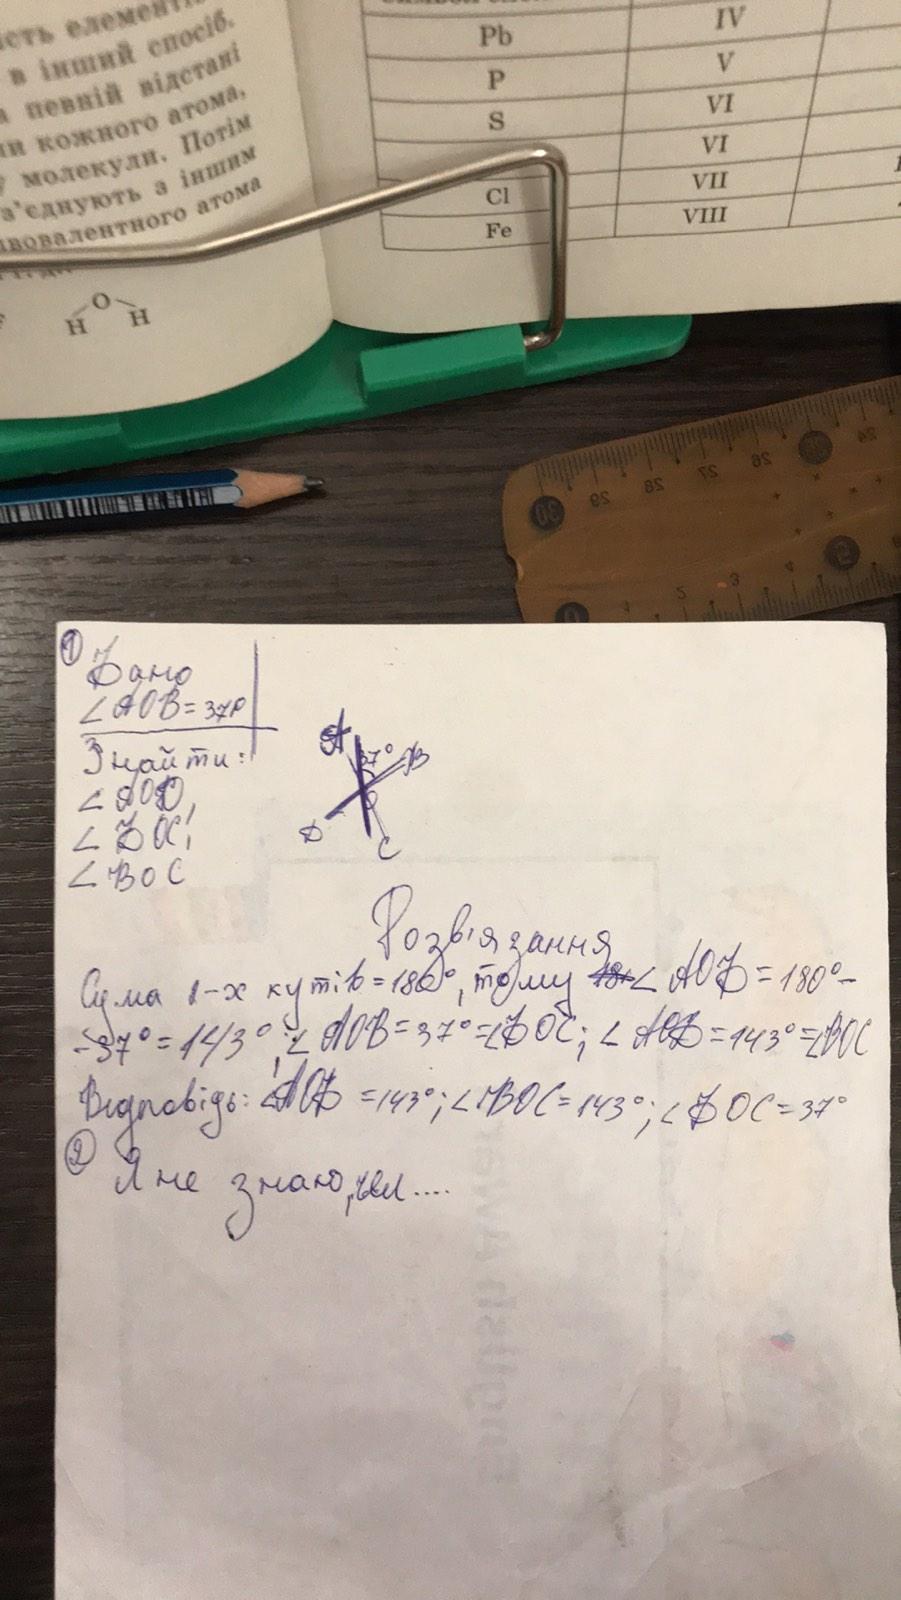 ість елементів
в інший спосіб.
а певній відстані
ни кожного атома,
у молекули. Потім
з'єднують з іншим
двовалентного атома
O
H H
Pb IV
P V
S VI
VI
Cl VII
Fe VIII
30 29 28 27 26 24
0 1 2 3 4 5
1
Дано
∠AOB = 37°
Знайти:
∠AOD,
∠DOC,
∠BOC
A 37° B
O
D C
Розв'язання
Сума 2-х кутів = 180°, тому ∠AOD = 180° -
- 37° = 143°; ∠AOB = 37° = ∠DOC; ∠AOD = 143° = ∠BOC
Відповідь: ∠AOD = 143°; ∠BOC = 143°; ∠DOC = 37°
2
Я не знаю,